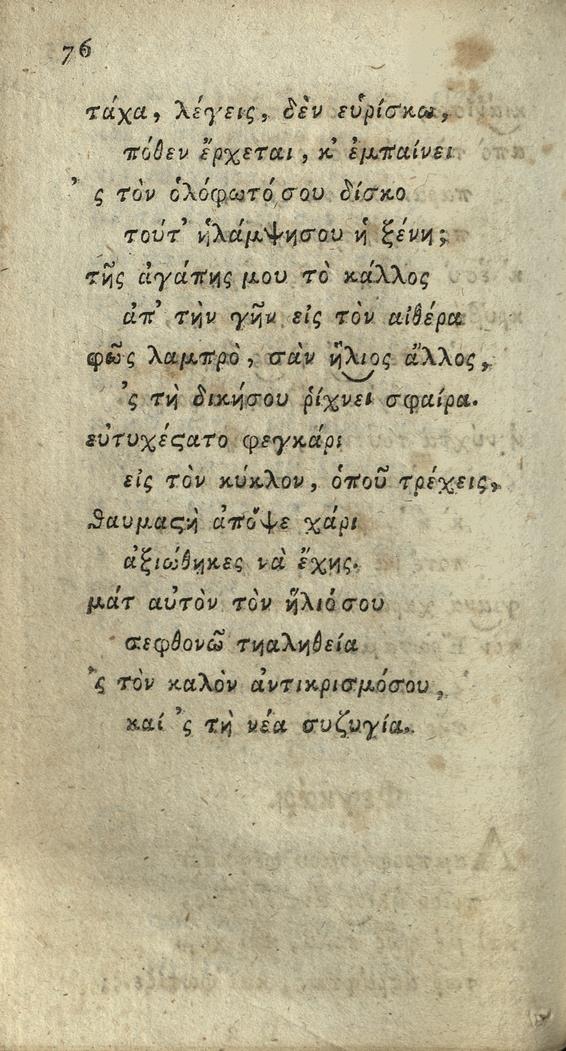 76
τάχα, λέγεις, δὲν εὑρίσκω,
πόθεν ἔρχεται, κ' ἐμπαίνει
'ς τὸν ὁλόφωτό σου δίσκο
τούτ' ἡλάμψησου ἡ ξένη;
τῆς ἀγάπης μου τὸ κάλλος
ἀπ' τὴν γῆν εἰς τὸν αἰθέρα
φῶς λαμπρὸ, σὰν ἥλιος ἄλλος,
'ς τὴ δικήσου ῥίχνει σφαίρα.
εὐτυχέςατο φεγκάρι
εἰς τὸν κύκλον, ὁποῦ τρέχεις,
θαυμαςὴ ἀπόψε χάρι
ἀξιώθηκες νὰ ἔχῃς.
μάτ αὐτὸν τὸν ἥλιόσου
σεφθονῶ τηαληθεία
'ς τὸν καλὸν ἀντικρισμόσου,
καί 'ς τὴ νέα συζυγία.